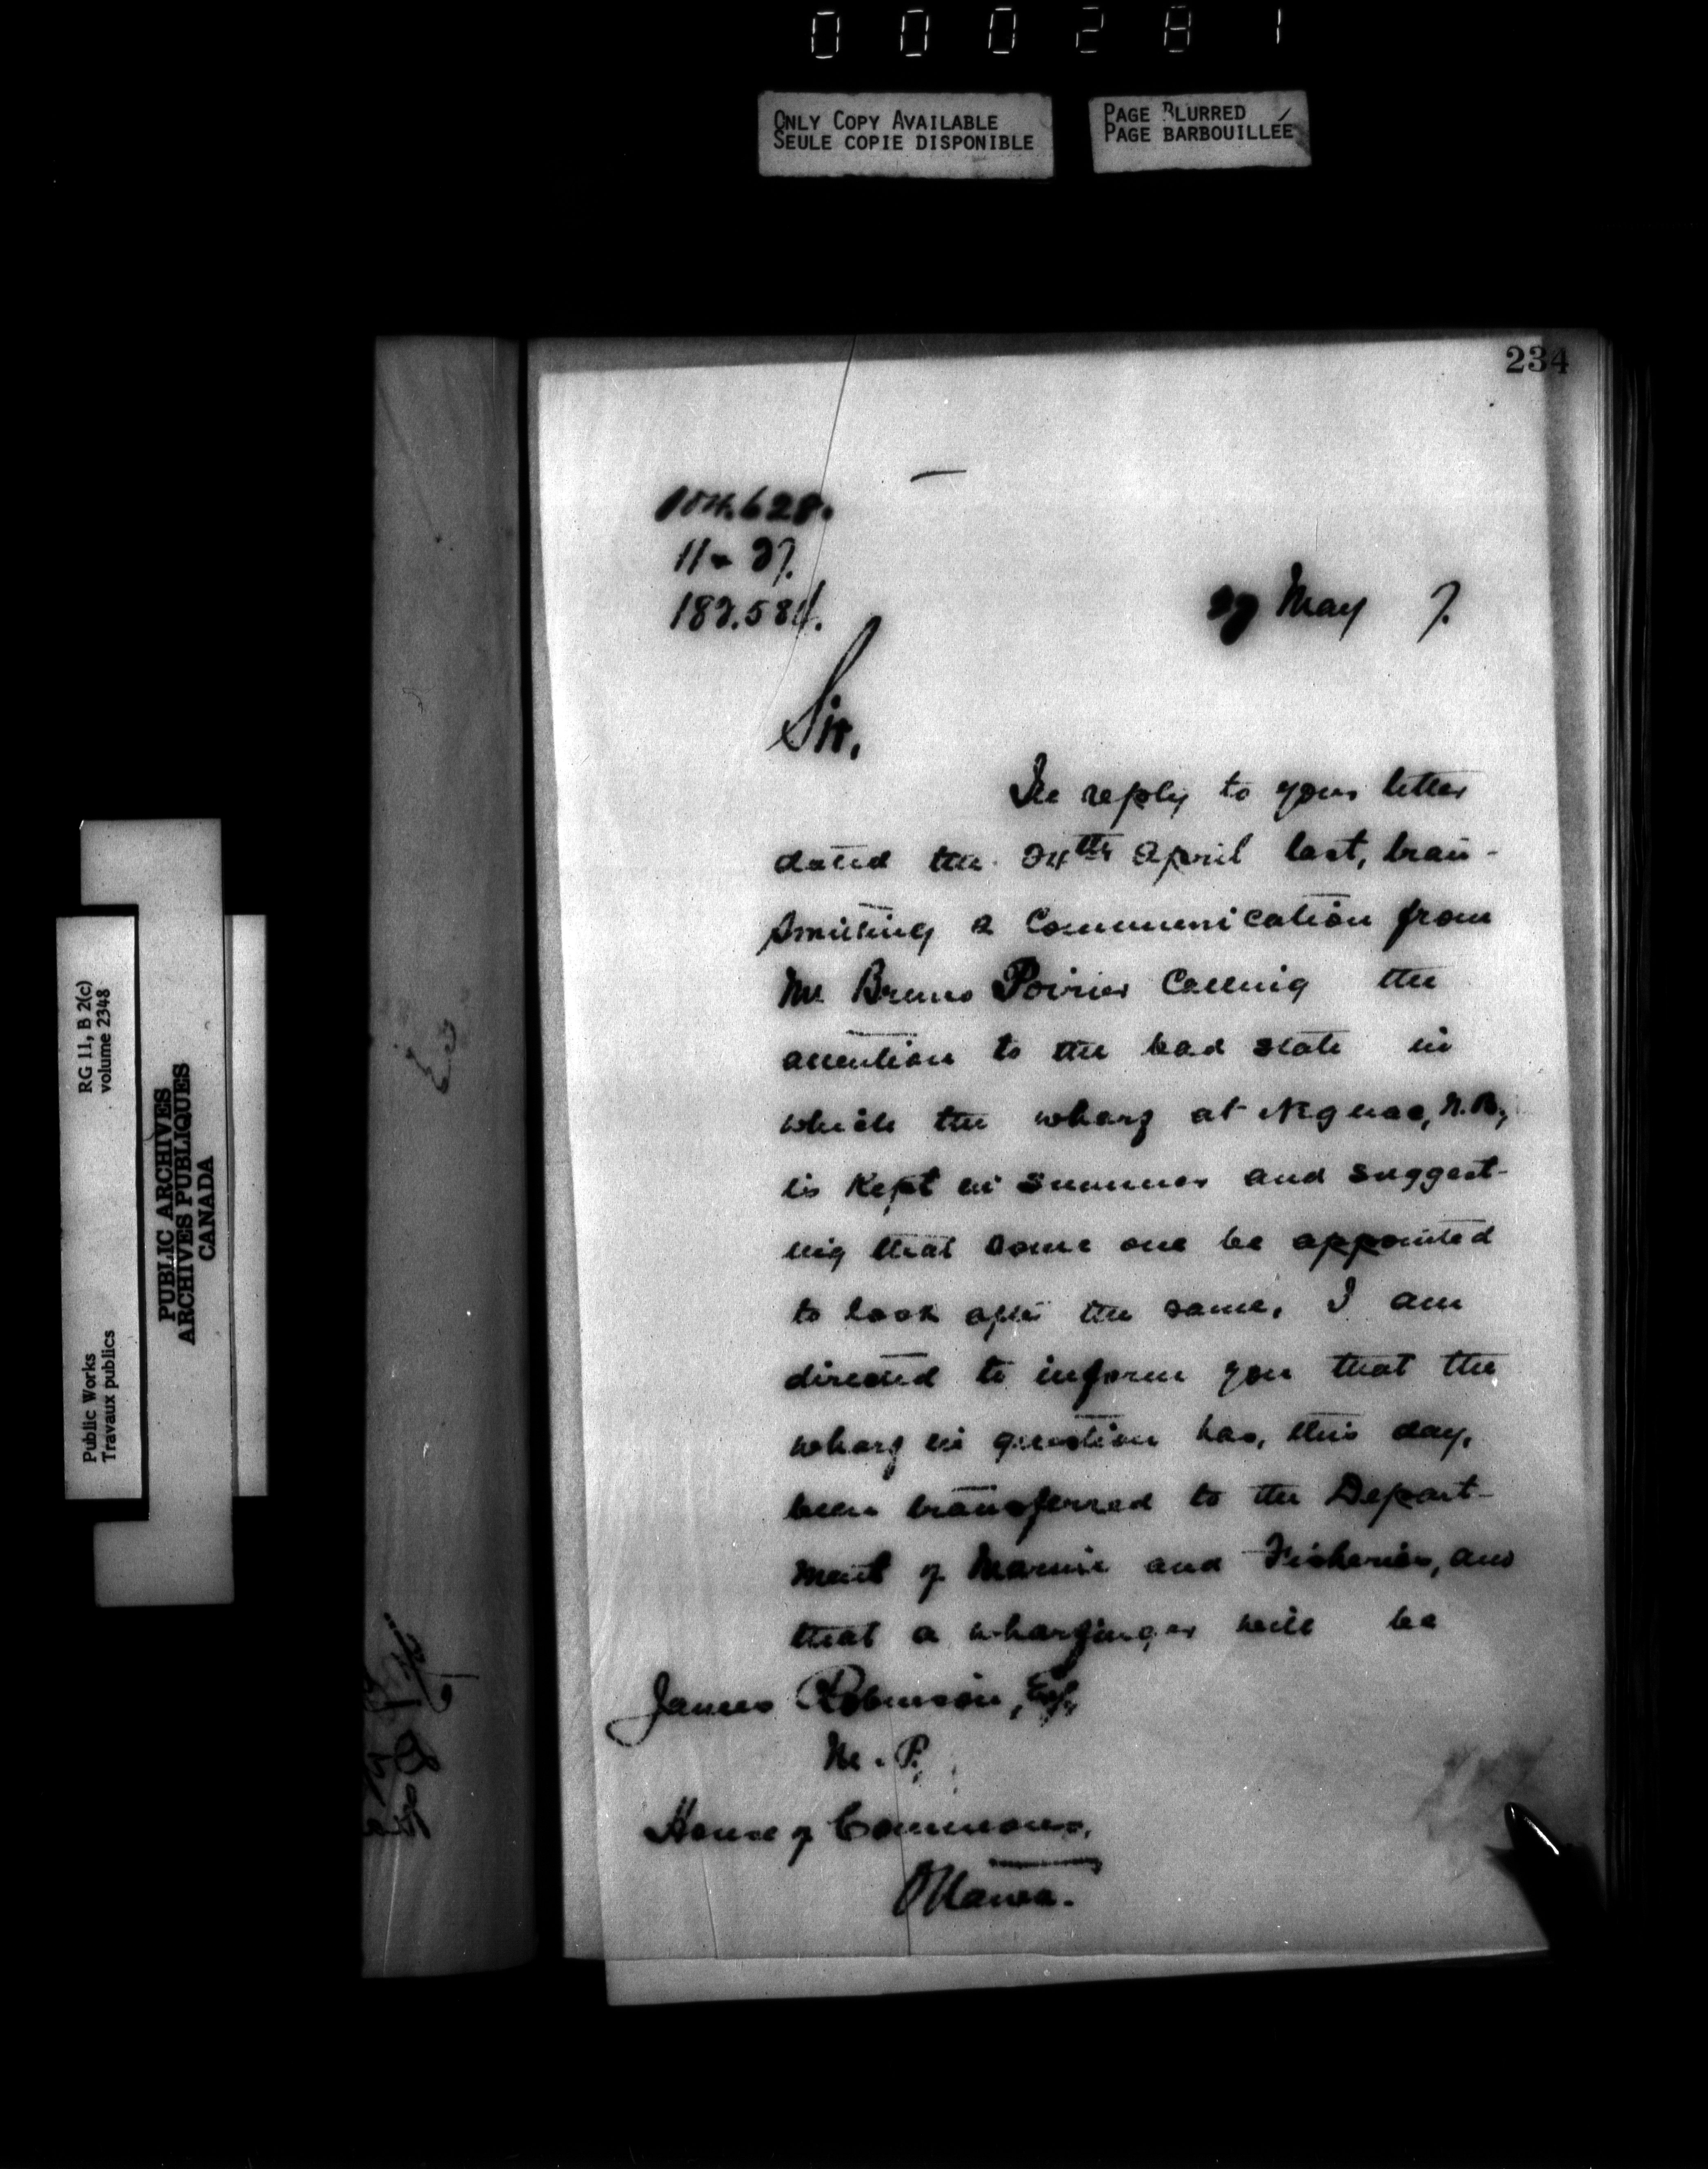 000281
ONLY COPY AVAILABLE
SEULE COPIE DISPONIBLE
PAGE BLURRED
PAGE BARBOUILLÉE
234
104.628.
11 - 27.
182.584.
27 May 7.
Sir,
In reply to your letter
dated the 24th April last, tran-
smitting a communication from
Mr Bruno Poirier calling the
attention to the bad state in
which the wharf at Neguac, N.B.,
is kept in summer and suggest-
ing that some one be appointed
to look after the same, I am
directed to inform you that the
wharf in question has, this day,
been transferred to the Depart-
ment of Marine and Fisheries, and
that a wharfinger will be
James Robinson, Esq.,
M.P.,
House of Commons,
Ottawa.
RG 11, B 2(c)
volume 2348
Public Works
Travaux publics
PUBLIC ARCHIVES
ARCHIVES PUBLIQUES
CANADA